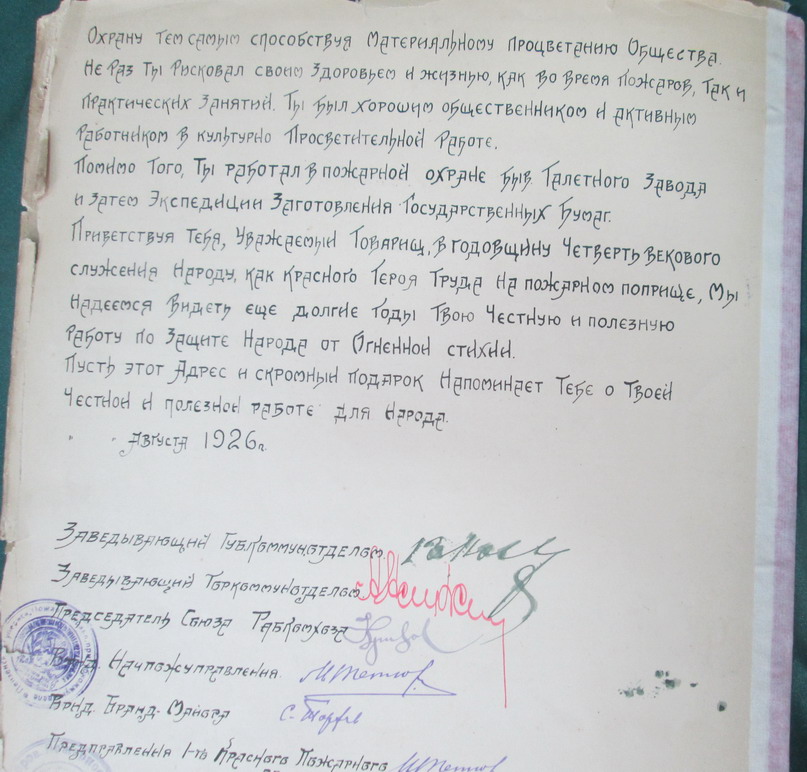 Охрану тем самым способствуя Материальному процветанию Общества.
Не раз ты рисковал своим Здоровьем и жизнью, как во время пожаров, так и
практических Занятий. Ты был хорошим общественником и активным
работником в культурно Просветительной Работе.
Помимо Того, Ты работал в пожарной охране быв. Галетного Завода
и затем Экспедиции Заготовления Государственных Бумаг.
Приветствуя Тебя, Уважаемый Товарищ, в годовщину Четверть векового
служения Народу, как Красного Героя Труда на пожарном поприще, Мы
надеемся видеть еще долгие Годы Твою Честную и полезную
работу по Защите Народа от Огненной стихии.
Пусть этот Адрес и скромный подарок Напоминает Тебе о Твоей
Честной и полезной работе для Народа.
" " Августа 1926 г.
Заведывающий Губкоммунотделом
Заведывающий Горкоммунотделом
Председатель Союза Рабкомхоза
Врид. Начпожуправления.
Врид. Бранд-Майора
Предправления 1-го Красного Пожарного